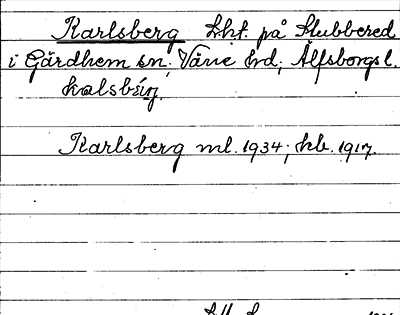 Karlsberg Lht. på Stubbered
i Gärdhem sn, Väne hd, Älfsborgs l.
kalsbérj.
Karlsberg ml. 1934; kb. 1917.